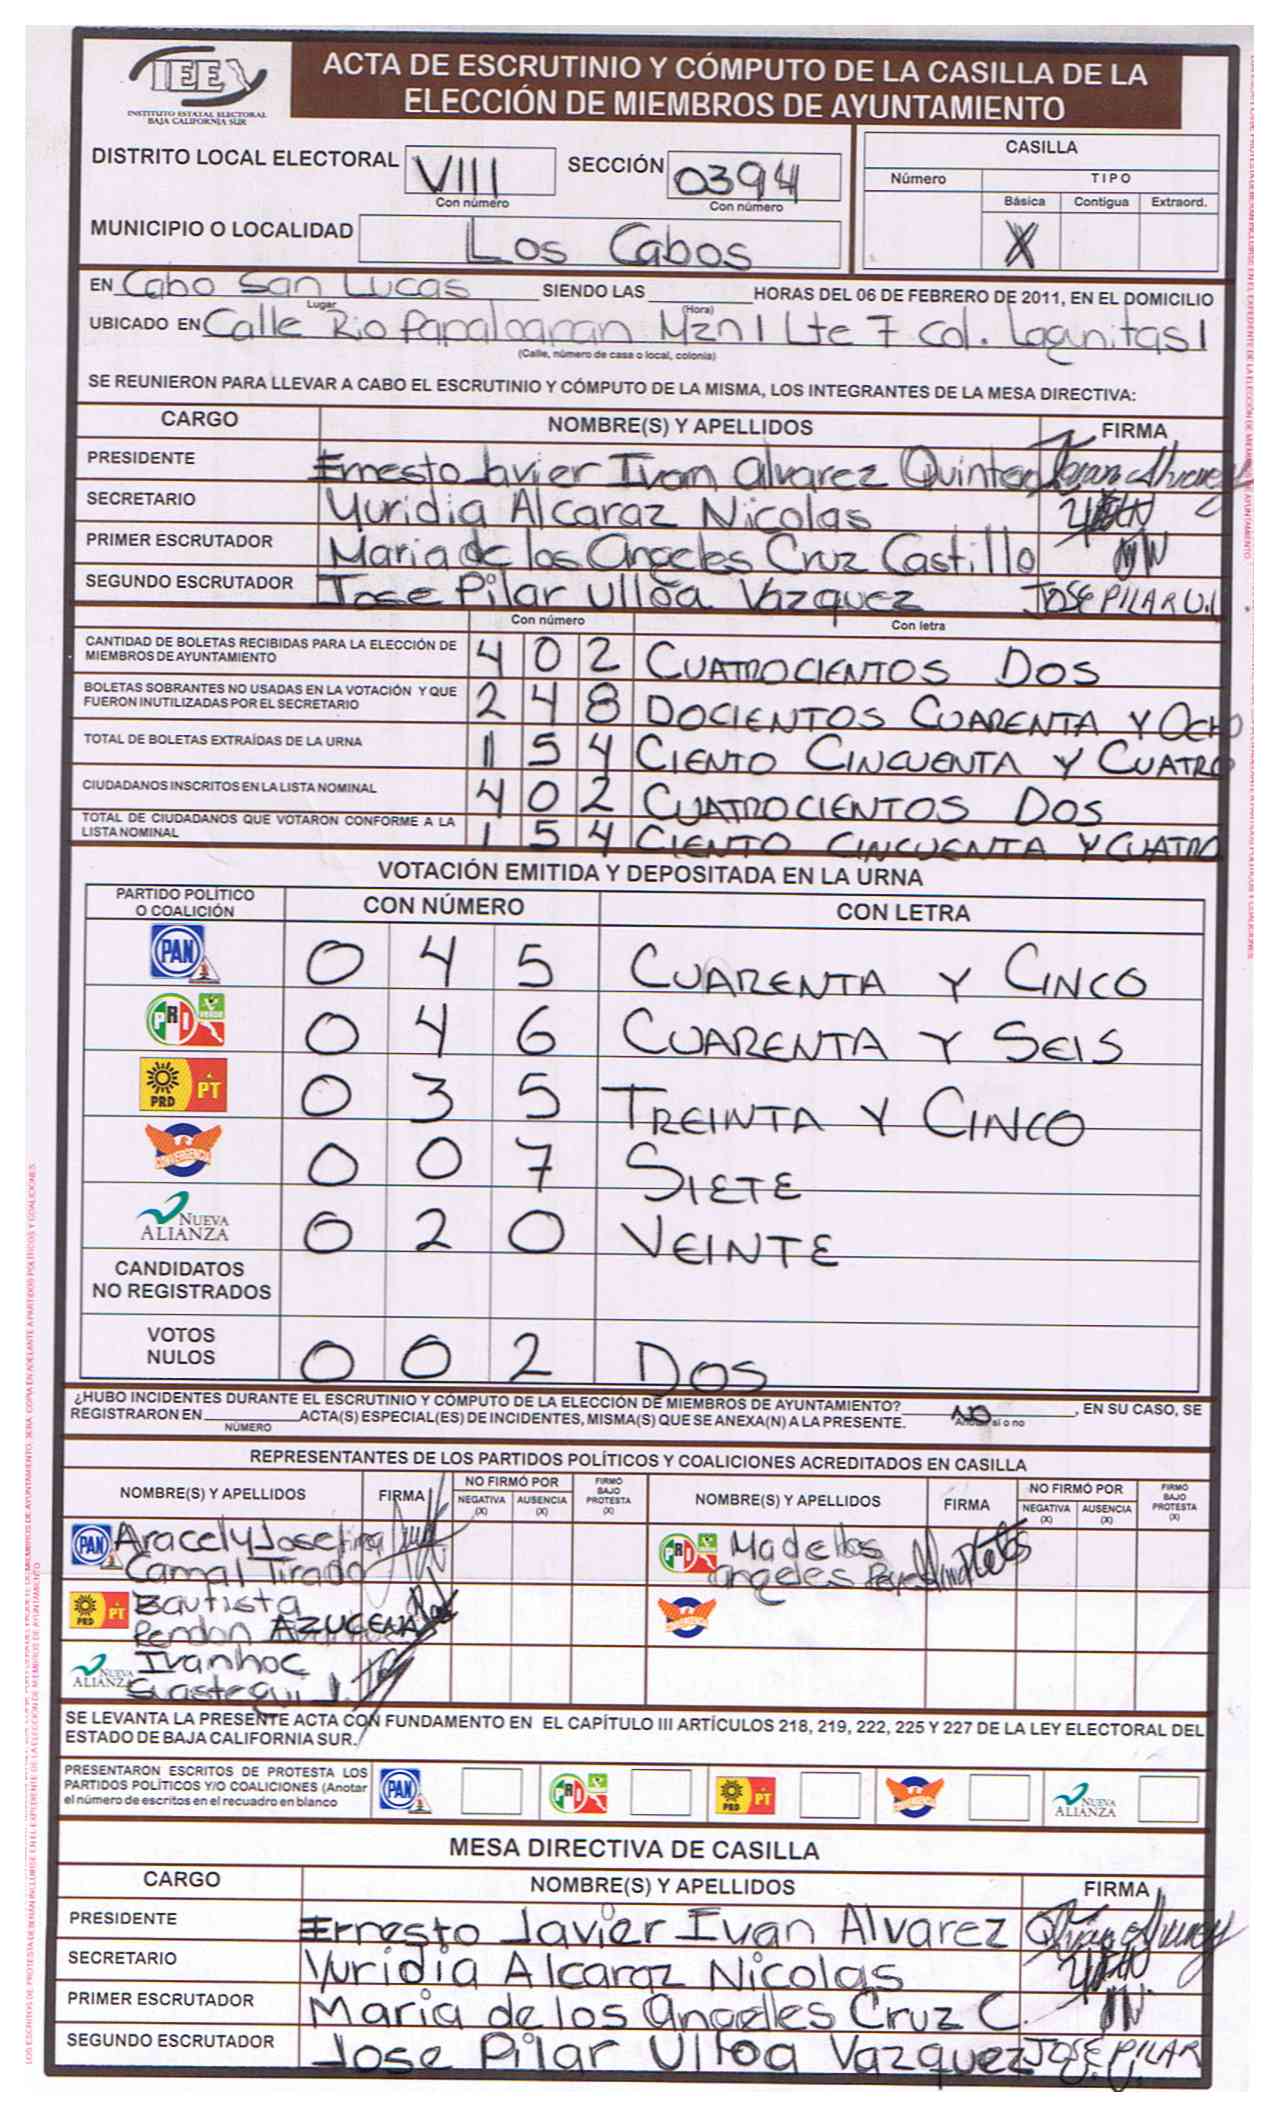 IEE
INSTITUTO ESTATAL ELECTORAL
BAJA CALIFORNIA SUR
ACTA DE ESCRUTINIO Y CÓMPUTO DE LA CASILLA DE LA
ELECCIÓN DE MIEMBROS DE AYUNTAMIENTO
DISTRITO LOCAL ELECTORAL VIII SECCIÓN 0394
Con número Con número
CASILLA
Número TIPO
Básica Contigua Extraord.
X
MUNICIPIO O LOCALIDAD Los Cabos
EN Cabo San Lucas SIENDO LAS HORAS DEL 06 DE FEBRERO DE 2011, EN EL DOMICILIO
Lugar (Hora)
UBICADO EN Calle Rio Papaloapan Mzn 1 Lte 7 Col. Lagunitas 1
(Calle, número de casa o local, colonia)
SE REUNIERON PARA LLEVAR A CABO EL ESCRUTINIO Y CÓMPUTO DE LA MISMA, LOS INTEGRANTES DE LA MESA DIRECTIVA:
CARGO NOMBRE(S) Y APELLIDOS FIRMA
PRESIDENTE Ernesto Javier Ivan Alvarez Quintero
SECRETARIO Yuridia Alcaraz Nicolas
PRIMER ESCRUTADOR Maria de los Angeles Cruz Castillo
SEGUNDO ESCRUTADOR Jose Pilar Ulloa Vazquez JOSE PILAR U.
Con número Con letra
CANTIDAD DE BOLETAS RECIBIDAS PARA LA ELECCIÓN DE
MIEMBROS DE AYUNTAMIENTO 402 CUATROCIENTOS DOS
BOLETAS SOBRANTES NO USADAS EN LA VOTACIÓN Y QUE
FUERON INUTILIZADAS POR EL SECRETARIO 248 DOCIENTOS CUARENTA Y OCHO
TOTAL DE BOLETAS EXTRAÍDAS DE LA URNA 154 CIENTO CINCUENTA Y CUATRO
CIUDADANOS INSCRITOS EN LA LISTA NOMINAL 402 CUATROCIENTOS DOS
TOTAL DE CIUDADANOS QUE VOTARON CONFORME A LA
LISTA NOMINAL 154 CIENTO CINCUENTA Y CUATRO
VOTACIÓN EMITIDA Y DEPOSITADA EN LA URNA
PARTIDO POLÍTICO
O COALICIÓN CON NÚMERO CON LETRA
PAN 0 4 5 CUARENTA Y CINCO
PRI VERDE 0 4 6 CUARENTA Y SEIS
PRD PT 0 3 5 TREINTA Y CINCO
CONVERGENCIA 0 0 7 SIETE
NUEVA ALIANZA 0 2 0 VEINTE
CANDIDATOS
NO REGISTRADOS
VOTOS
NULOS 0 0 2 DOS
¿HUBO INCIDENTES DURANTE EL ESCRUTINIO Y CÓMPUTO DE LA ELECCIÓN DE MIEMBROS DE AYUNTAMIENTO? NO , EN SU CASO, SE
REGISTRARON EN ACTA(S) ESPECIAL(ES) DE INCIDENTES, MISMA(S) QUE SE ANEXA(N) A LA PRESENTE. Anotar si o no
NÚMERO
REPRESENTANTES DE LOS PARTIDOS POLÍTICOS Y COALICIONES ACREDITADOS EN CASILLA
NOMBRE(S) Y APELLIDOS FIRMA NO FIRMÓ POR NEGATIVA (X) AUSENCIA (X) FIRMÓ BAJO PROTESTA (X) NOMBRE(S) Y APELLIDOS FIRMA NO FIRMÓ POR NEGATIVA (X) AUSENCIA (X) FIRMÓ BAJO PROTESTA (X)
PAN Aracely Josefina
Camal Tirado
PRI Ma de los
Angeles
PRD PT Bautista
Rendon AZUCENA
CONVERGENCIA
NUEVA ALIANZA Ivanhoe
SE LEVANTA LA PRESENTE ACTA CON FUNDAMENTO EN EL CAPÍTULO III ARTÍCULOS 218, 219, 222, 225 Y 227 DE LA LEY ELECTORAL DEL
ESTADO DE BAJA CALIFORNIA SUR.
PRESENTARON ESCRITOS DE PROTESTA LOS
PARTIDOS POLÍTICOS Y/O COALICIONES (Anotar
el número de escritos en el recuadro en blanco
PAN PRI PRD PT CONVERGENCIA NUEVA ALIANZA
MESA DIRECTIVA DE CASILLA
CARGO NOMBRE(S) Y APELLIDOS FIRMA
PRESIDENTE Ernesto Javier Ivan Alvarez
SECRETARIO Yuridia Alcaraz Nicolas
PRIMER ESCRUTADOR Maria de los Angeles Cruz C.
SEGUNDO ESCRUTADOR Jose Pilar Ulloa Vazquez JOSE PILAR